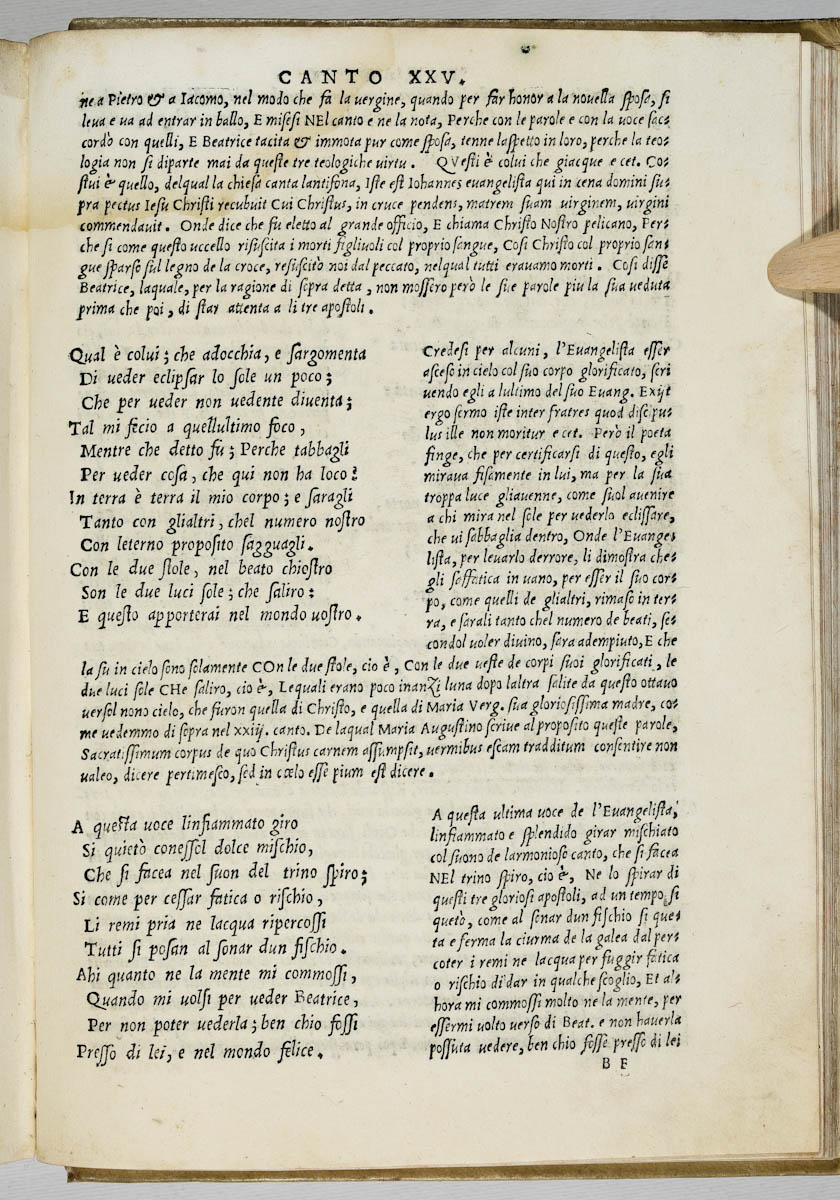 CANTO XXV.
ne a Pietro & a Iacomo, nel modo che fa la vergine, quando per far honor a la nouella sposa, si
leua e ua ad entrar in ballo, E misesi NEl canto e ne la nota, Perche con le parole e con la uoce sac-
cordò con quelli, E Beatrice tacita & immota pur come sposa, tenne laspetto in loro, perche la teo-
logia non si diparte mai da queste tre teologiche uirtu. QVesti è colui che giacque e cet. Co-
stui è quello, delqual la chiesa canta lantifona, Iste est Iohannes euangelista qui in cena domini su-
pra pectus Iesu Christi recubuit Cui Christus, in cruce pendens, matrem suam uirginem, uirgini
commendauit. Onde dice che fu eletto al grande officio, E chiama Christo Nostro pelicano, Per-
che si come questo uccello risuscita i morti figliuoli col proprio sangue, Cosi Christo col proprio san-
gue sparso sul legno de la croce, resuscitò noi dal peccato, nelqual tutti erauamo morti. Cosi disse
Beatrice, laquale, per la ragione di sopra detta, non mossero però le sue parole piu la sua ueduta
prima che poi, di star attenta a li tre apostoli.
Qual è colui; che adocchia, e sargomenta
Di ueder eclipsar lo sole un poco;
Che per ueder non uedente diuenta;
Tal mi fecio a quellultimo foco,
Mentre che detto fu; Perche tabbagli
Per ueder cosa, che qui non ha loco?
In terra è terra il mio corpo; e saragli
Tanto con glialtri, chel numero nostro
Con leterno proposito sagguagli.
Con le due stole, nel beato chiostro
Son le due luci sole; che saliro:
E questo apporterai nel mondo uostro.
Credesi per alcuni, l'Euangelista esser
asceso in cielo col suo corpo glorificato, scri
uendo egli a lultimo del suo Euang. Exijt
ergo sermo iste inter fratres quod discipu-
lus ille non moritur e cet. Però il poeta
finge, che per certificarsi di questo, egli
miraua fisamente in lui, ma per la sua
troppa luce gliauenne, come suol auenire
a chi mira nel sole per uederlo eclissare,
che ui sabbaglia dentro, Onde l'Euange-
lista, per leuarlo derrore, li dimostra che-
gli saffatica in uano, per esser il suo cor-
po, come quelli de glialtri, rimaso in ter-
ra, e sarali tanto chel numero de beati, se-
condol uoler diuino, sara adempiuto, E che
la su in cielo sono solamente COn le due stole, cio è, Con le due ueste de corpi suoi glorificati, le
due luci sole CHe saliro, cio è, Lequali erano poco inanzi luna dopo laltra salite da questo ottauo
uersol nono cielo, che furon quella di Christo, e quella di Maria Verg. sua gloriosissima madre, co-
me uedemmo di sopra nel xxiij. canto. De laqual Maria Augustino scriue al proposito queste parole,
Sacratissimum corpus de quo Christus carnem assumpsit, uermibus escam tradditum consentire non
ualeo, dicere pertimesco, sed in cœlo esse pium est dicere.
A questa uoce linfiammato giro
Si quietò conessol dolce mischio,
Che si facea nel suon del trino spiro;
Si come per cessar fatica o rischio,
Li remi pria ne lacqua ripercossi
Tutti si posan al sonar dun fischio.
Ahi quanto ne la mente mi commossi,
Quando mi uolsi per ueder Beatrice,
Per non poter uederla; ben chio fossi
Presso di lei, e nel mondo felice.
A questa ultima uoce de l'Euangelista,
linfiammato e splendido girar mischiato
col suono de larmonioso canto, che si facea
NEl trino spiro, cio è, Ne lo spirar di
questi tre gloriosi apostoli, ad un tempo si
quetò, come al sonar dun fischio si que-
ta e ferma la ciurma de la galea dal per-
coter i remi ne lacqua per fuggir fatica
o rischio di dar in qualche scoglio, Et al-
hora mi commossi molto ne la mente, per
essermi uolto uerso di Beat. e non hauerla
possuta uedere, ben chio fosse presso di lei
B F